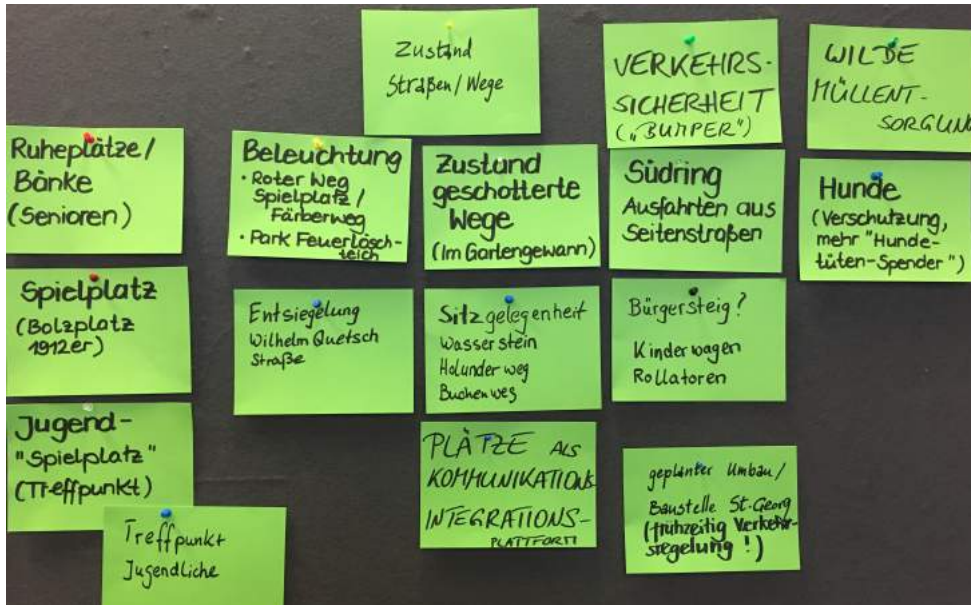 Zustand
Straßen/Wege
VERKEHRS-
SICHERHEIT
("BUMPER")
WILDE
MÜLLENT-
SORGUNG
Ruheplätze/
Bänke
(Senioren)
Beleuchtung
• Roter Weg
Spielplatz/
Färberweg
• Park Feuerlösch-
teich
Zustand
geschotterte
Wege
(Im Gartengewann)
Südring
Ausfahrten aus
Seitenstraßen
Hunde
(Verschutzung,
mehr "Hunde-
tüten-Spender")
Spielplatz
(Bolzplatz
1912er)
Entsiegelung
Wilhelm Quetsch
Straße
Sitzgelegenheit
Wasserstein
Holunderweg
Buchenweg
Bürgersteig?
Kinderwagen
Rollatoren
Jugend-
"Spielplatz"
(Treffpunkt)
PLÄTZE ALS
KOMMUNIKATIONS-
INTEGRATIONS-
PLATTFORM
geplanter Umbau/
Baustelle St-Georg
(frühzeitig Verkehr-
sregelung!)
Treffpunkt
Jugendliche